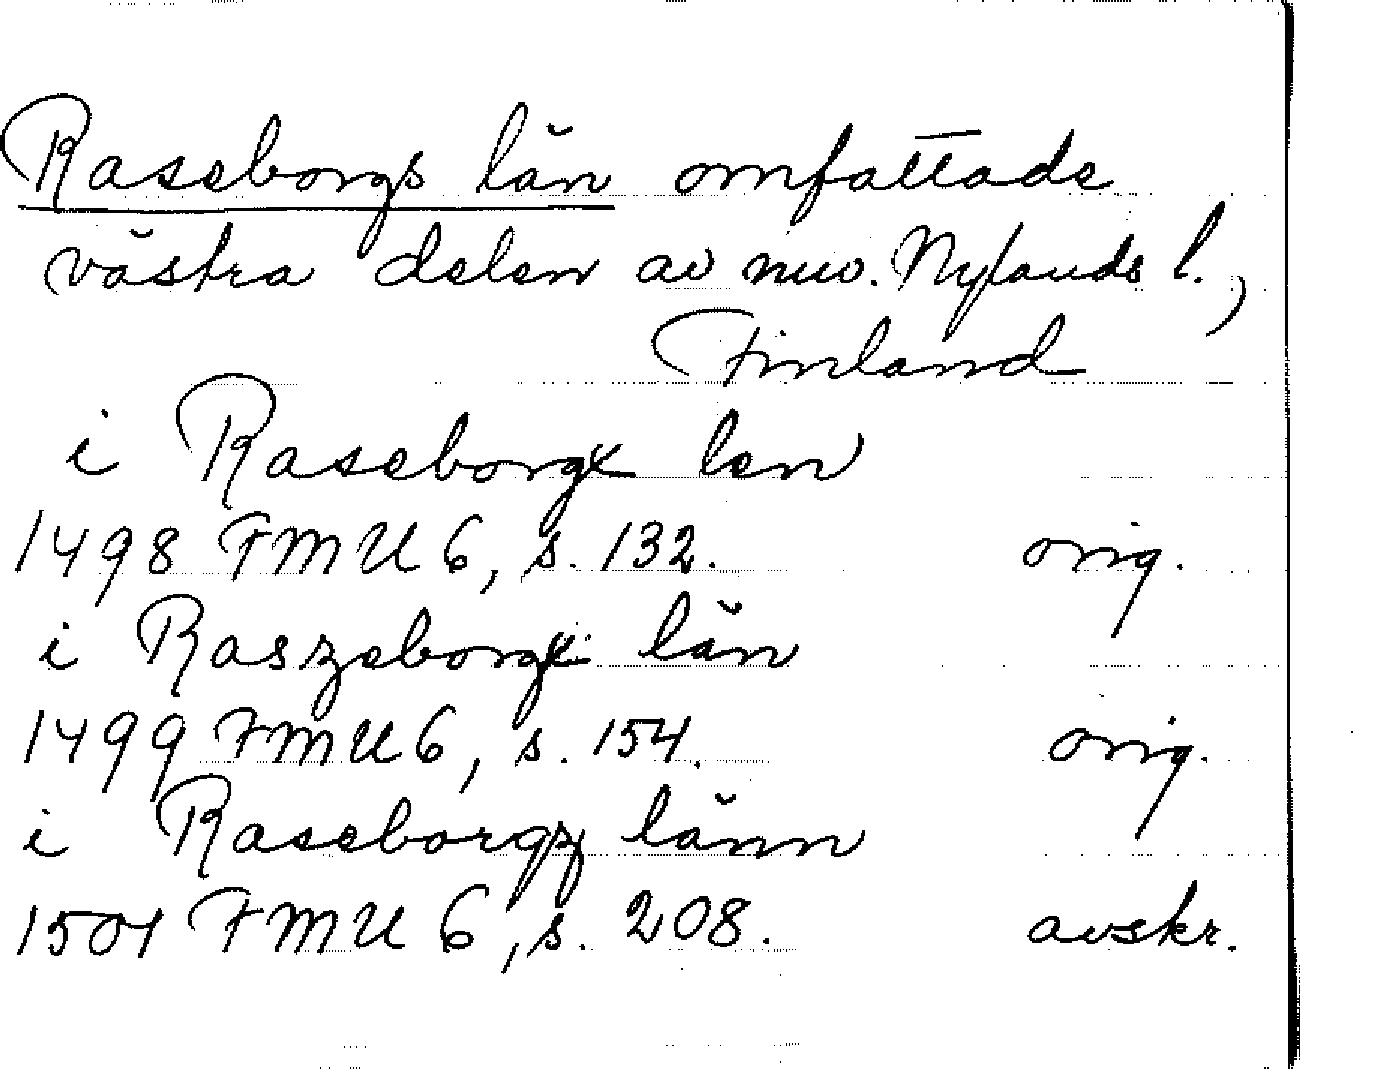 Raseborgs län omfattade
västra delen av nuv. Nylands l.,
Finland
i Raseborgx len
1498 FMU 6, s. 132. orig.
i Raszeborgx län
1499 FMU 6, s. 154. orig.
i länn
1501 FMU 6, s. 208. avskr.